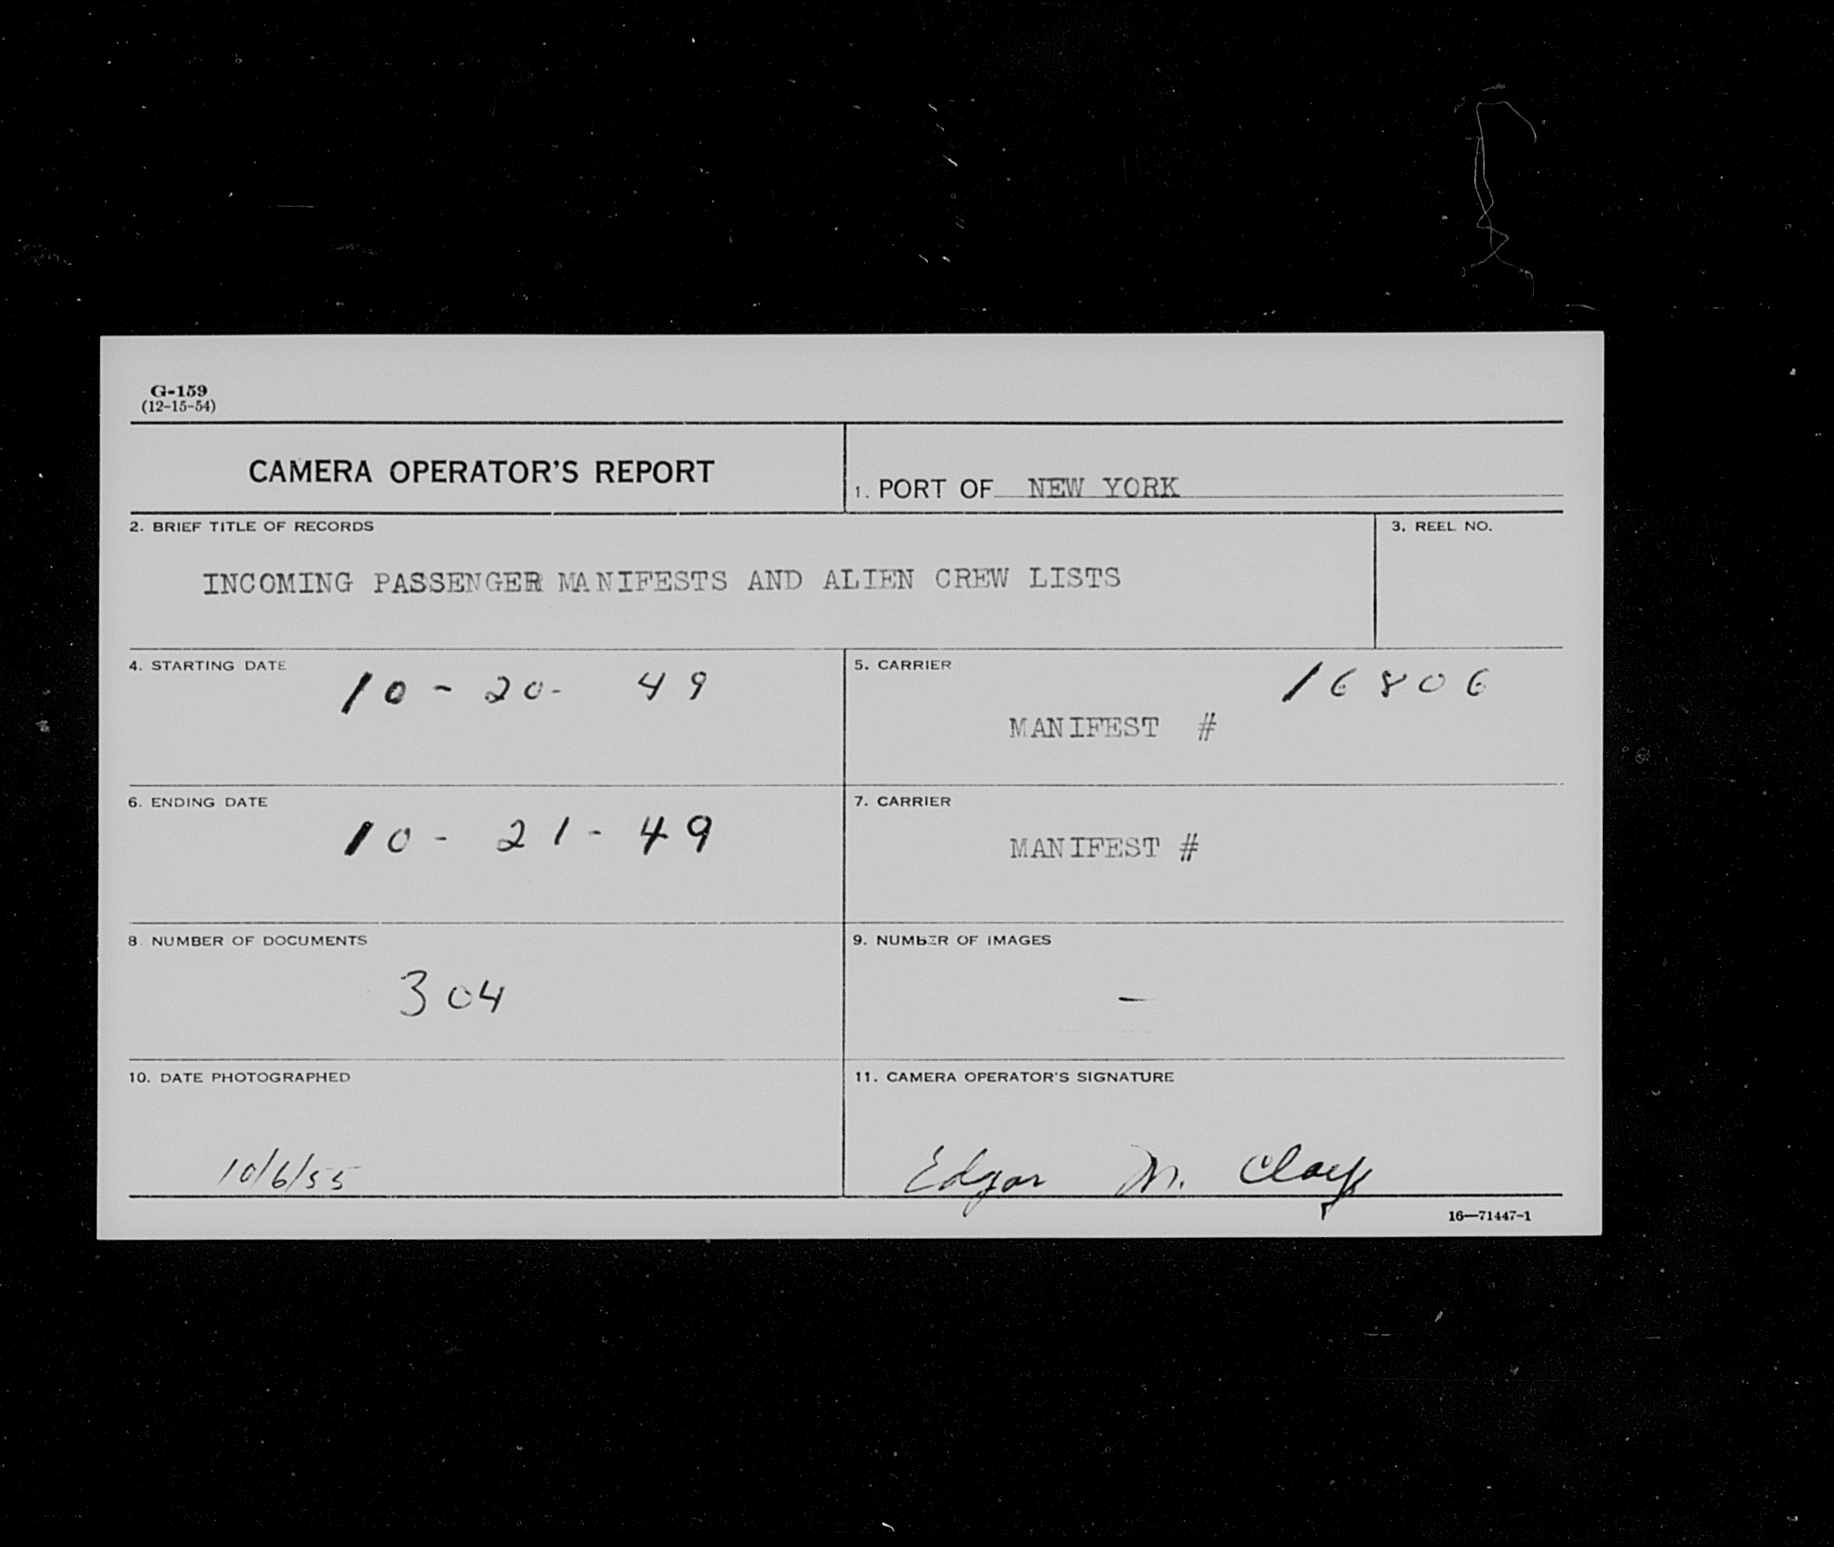 G-159
(12-15-54)
CAMERA OPERATOR'S REPORT
1. PORT OF NEW YORK
2. BRIEF TITLE OF RECORDS
3. REEL NO.
INCOMING PASSENGER MANIFESTS AND ALIEN CREW LISTS
4. STARTING DATE
10 - 20 - 49
5. CARRIER
16806
MANIFEST #
6. ENDING DATE
10 - 21 - 49
7. CARRIER
MANIFEST #
8. NUMBER OF DOCUMENTS
304
9. NUMBER OF IMAGES
—
10. DATE PHOTOGRAPHED
10/6/55
11. CAMERA OPERATOR'S SIGNATURE
Edgar M.
16—71447-1